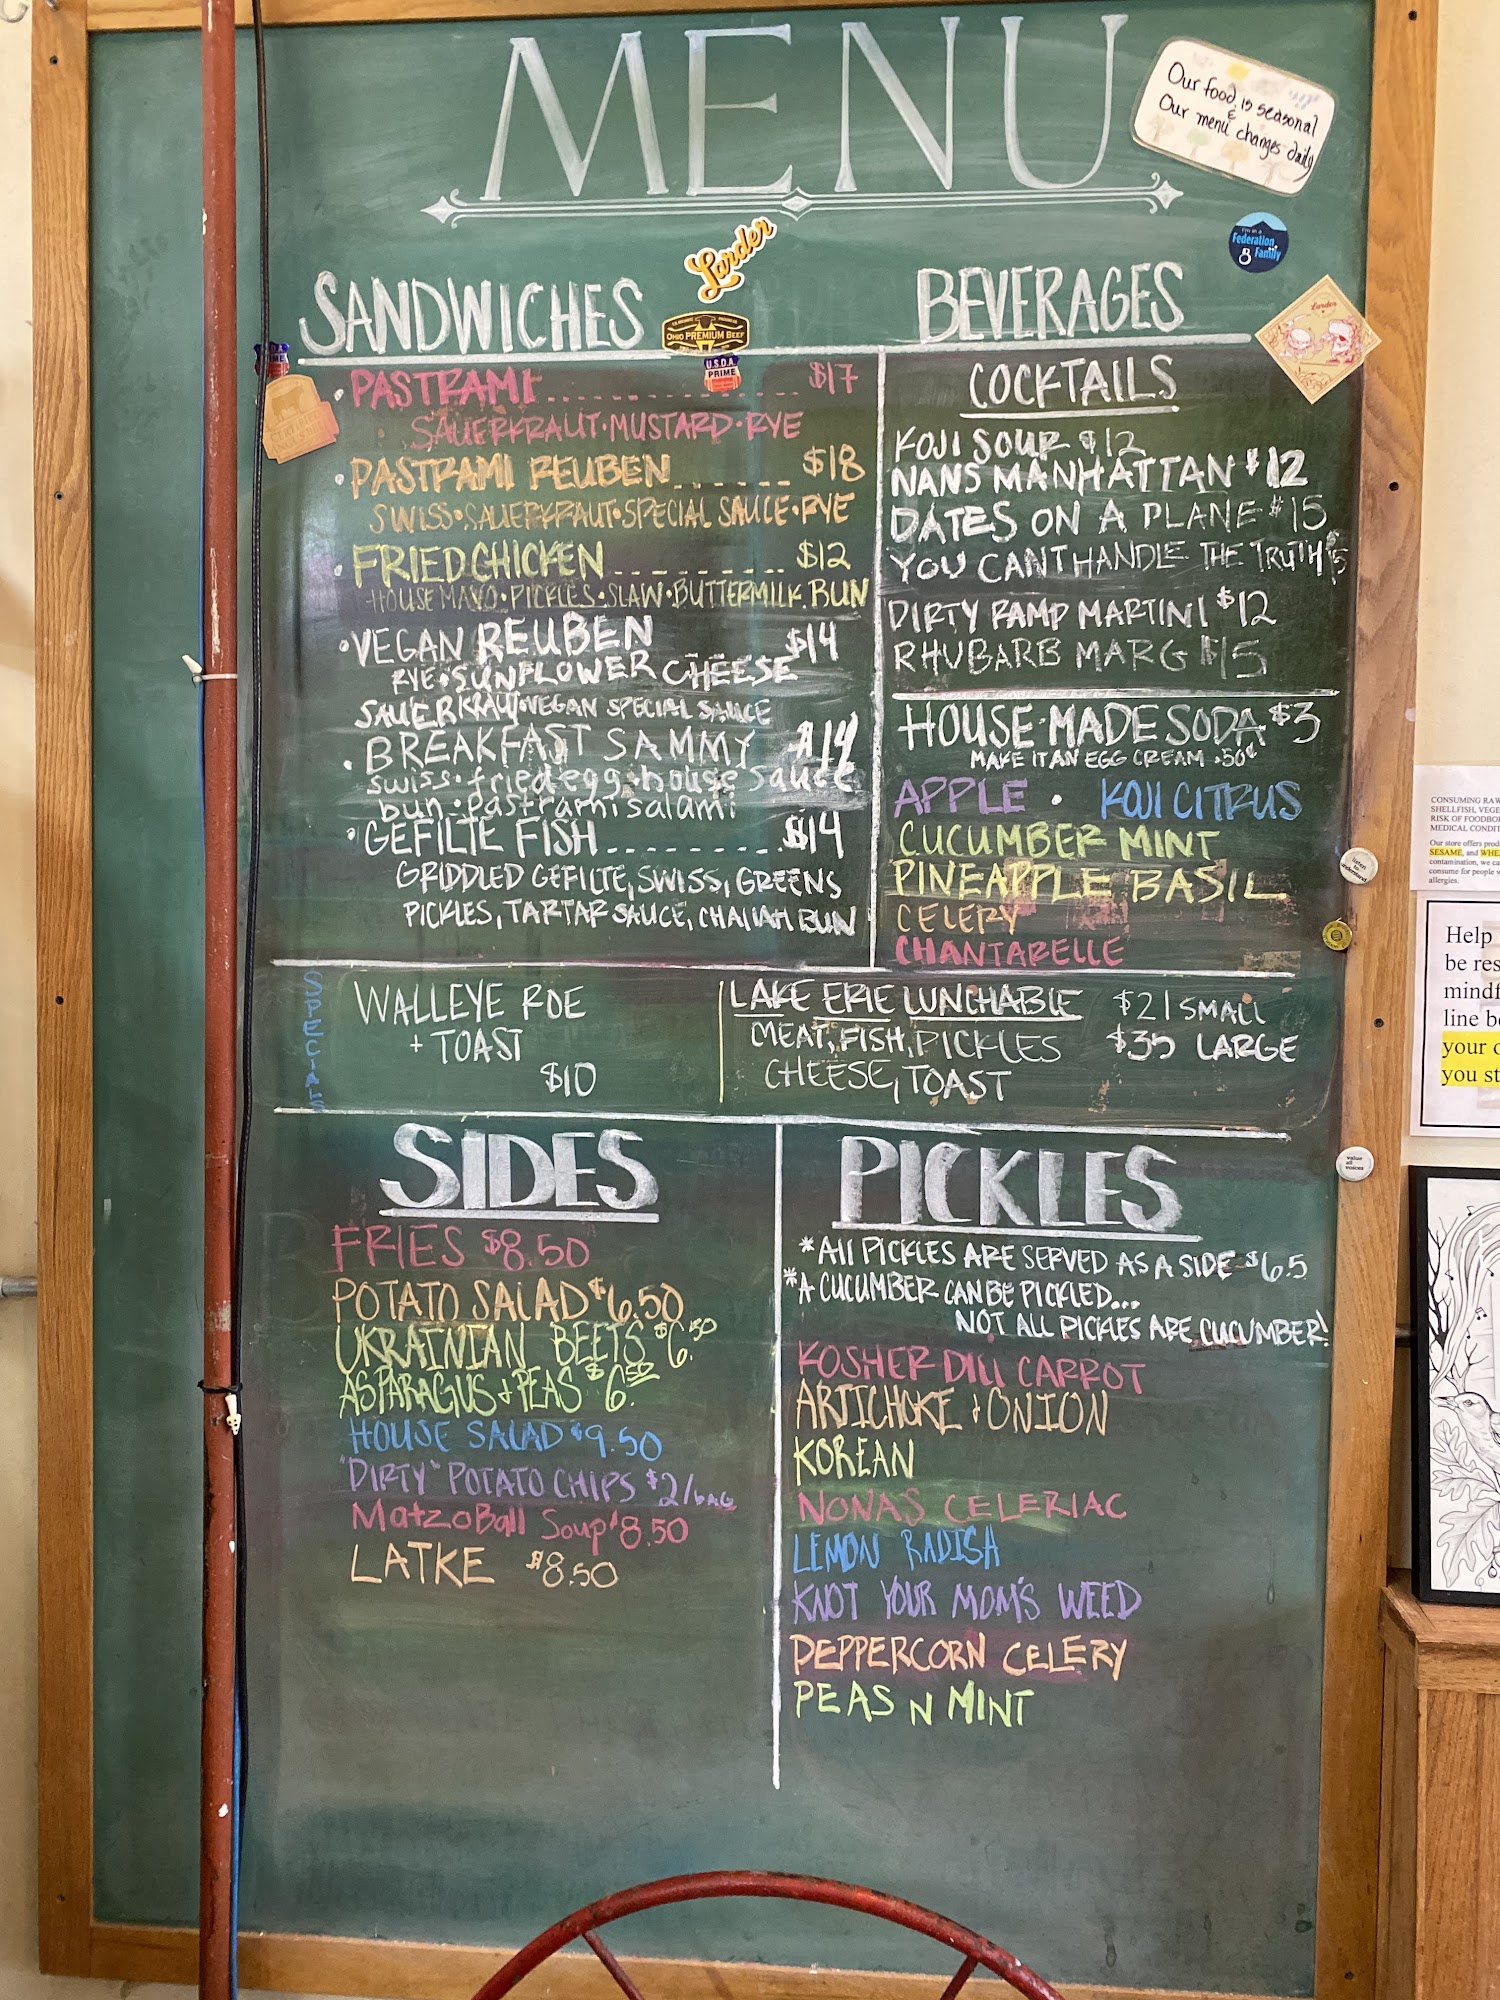 MENU
Our food is seasonal
&
Our menu changes daily
Larder
I'm in a
Federation
Family
OHIO PREMIUM BEEF
U.S.D.A.
PRIME
Larder
SANDWICHES
• PASTRAMI $17
SAUERKRAUT • MUSTARD • RYE
• PASTRAMI REUBEN $18
SWISS • SAUERKRAUT • SPECIAL SAUCE • RYE
• FRIED CHICKEN $12
HOUSE MAYO • PICKLES • SLAW • BUTTERMILK BUN
• VEGAN REUBEN $14
RYE • SUNFLOWER CHEESE
SAUERKRAUT • VEGAN SPECIAL SAUCE
• BREAKFAST SAMMY $14
swiss • fried egg • house sauce
bun • pastrami salami
• GEFILTE FISH $14
GRIDDLED GEFILTE, SWISS, GREENS
PICKLES, TARTAR SAUCE, CHALLAH BUN
BEVERAGES
COCKTAILS
KOJI SOUR $12
NANS MANHATTAN $12
DATES ON A PLANE $15
YOU CANT HANDLE THE TRUTH
DIRTY RAMP MARTINI $12
RHUBARB MARG $15
HOUSE-MADE SODA $3
MAKE IT AN EGG CREAM .50¢
APPLE • KOJI CITRUS
CUCUMBER MINT
PINEAPPLE BASIL
CELERY
CHANTARELLE
SPECIALS
WALLEYE ROE
+ TOAST
$10
LAKE ERIE LUNCHABLE $21 SMALL
MEAT, FISH, PICKLES $35 LARGE
CHEESE, TOAST
SIDES
FRIES $8.50
POTATO SALAD $6.50
UKRAINIAN BEETS $6.50
ASPARAGUS + PEAS $6.50
HOUSE SALAD $9.50
"DIRTY" POTATO CHIPS $2/BAG
MatzoBall Soup $8.50
LATKE $8.50
PICKLES
*All PICKLES ARE SERVED AS A SIDE $6.5
*A CUCUMBER CAN BE PICKLED...
NOT ALL PICKLES ARE CUCUMBER!
KOSHER DILL CARROT
ARTICHOKE + ONION
KOREAN
NONAS CELERIAC
LEMON RADISH
KNOT YOUR MOM'S WEED
PEPPERCORN CELERY
PEAS N MINT
listen to understand
value
all
voices
CONSUMING RAW
SHELLFISH,
RISK OF
MEDICAL
Our store offers
SESAME, and
contamination, we
consume for people
allergies.
Help
be
line
your
you